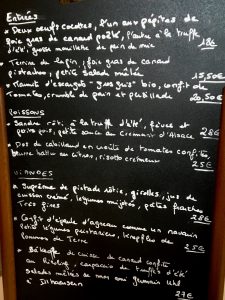 Entrées
* Deux oeufs cocottes, l'un aux pépites de
foie gras de canard poêlé, l'autre à la truffe
d'été, grosse mouillette de pain de mie
18€
* Terrine de lapin, foie gras de canard
pistaches, petite salade mêlée
15,50€
* d'escargots "gros gris" bio, confit de
tomates, crumble de pain et persillade
20,50€
Poissons
* Sandre rôti à la truffe d'été, fèves et
petits pois, petite sauce au Crémant d'Alsace
28€
* Dos de cabillaud en croûte de tomates confites,
beurre battu au citron, risotto crémeux
25€
Viandes
* Suprême de pintade rôtie, girolles, jus de
cuisson crémé, légumes mijotés, pâtes fraîches
très fines
28€
* Confit d'épaule d'agneau comme un navarin
petits légumes printaniers, knepfles de
pommes de terre
25€
* de cuisse de canard confite
au Riesling, carpaccio de truffes d'été
salades mêlées de
à
27€